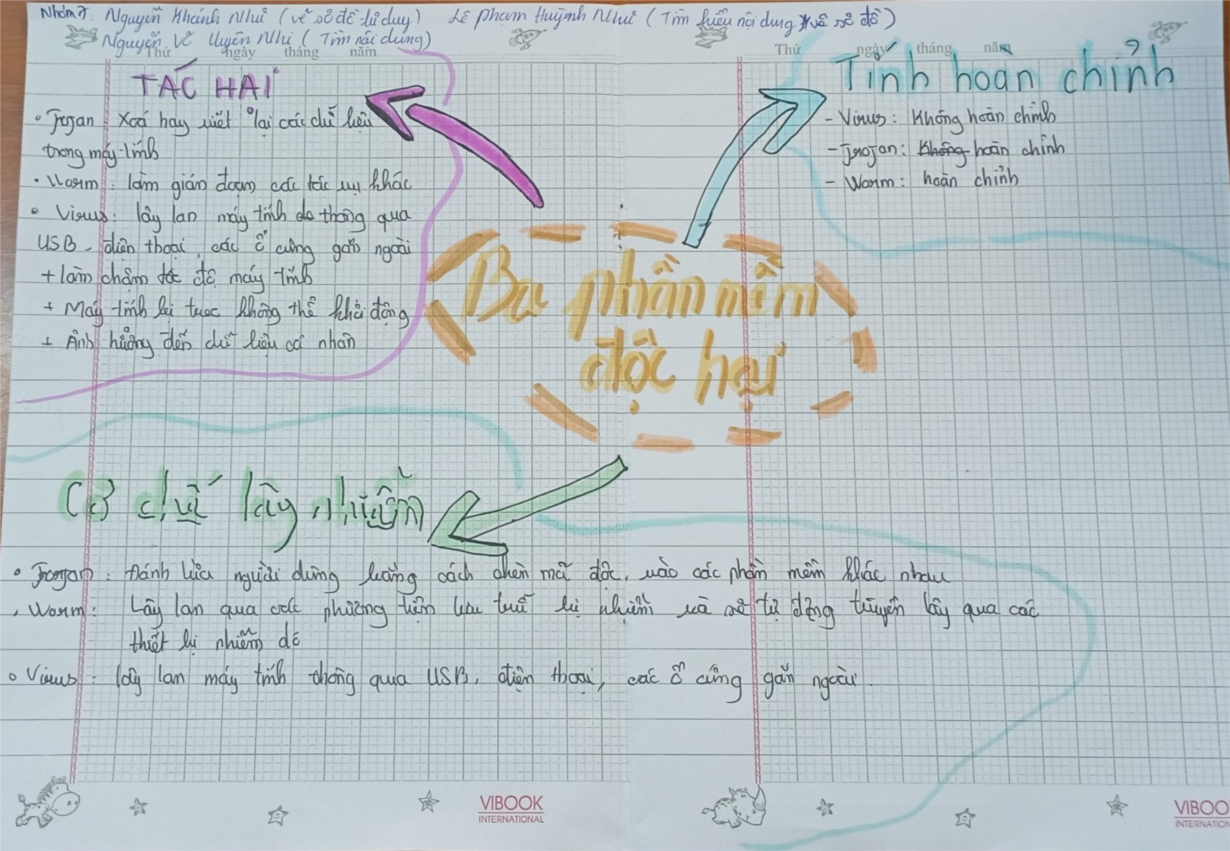 Nhóm 7: Nguyễn Khánh Như (vẽ sơ đồ tư duy) Lê Phạm Huỳnh Như (Tìm hiểu nội dung vẽ sơ đồ)
Nguyễn Vũ Uyên Nhi (Tìm nội dung)
Thứ ngày tháng năm
Thứ ngày tháng năm
TÁC HẠI
• Trojan: Xoá hay viết lại các dữ liệu
trong máy tính
• Worm: làm gián đoạn các tác vụ khác
• Virus: lây lan máy tính do thông qua
USB, điện thoại, các ổ cứng gắn ngoài
+ làm chậm tốc độ máy tính
+ Máy tính bị treo không thể khởi động
+ Ảnh hưởng đến dữ liệu cá nhân
Tính hoàn chỉnh
- Virus: Không hoàn chỉnh
- Trojan: Không hoàn chỉnh
- Worm: hoàn chỉnh
Ba phần mềm
độc hại
Cơ chế lây nhiễm
• Trojan: Đánh lừa người dùng bằng cách chèn mã độc, vào các phần mềm khác nhau
• Worm: Lây lan qua các phương tiện lưu trữ bị nhiễm và sẽ tự động truyền lây qua các
thiết bị nhiễm đó
• Virus: lây lan máy tính thông qua USB, điện thoại, các ổ cứng gắn ngoài.
VIBOOK
INTERNATIONAL
VIBOO
INTERNATION